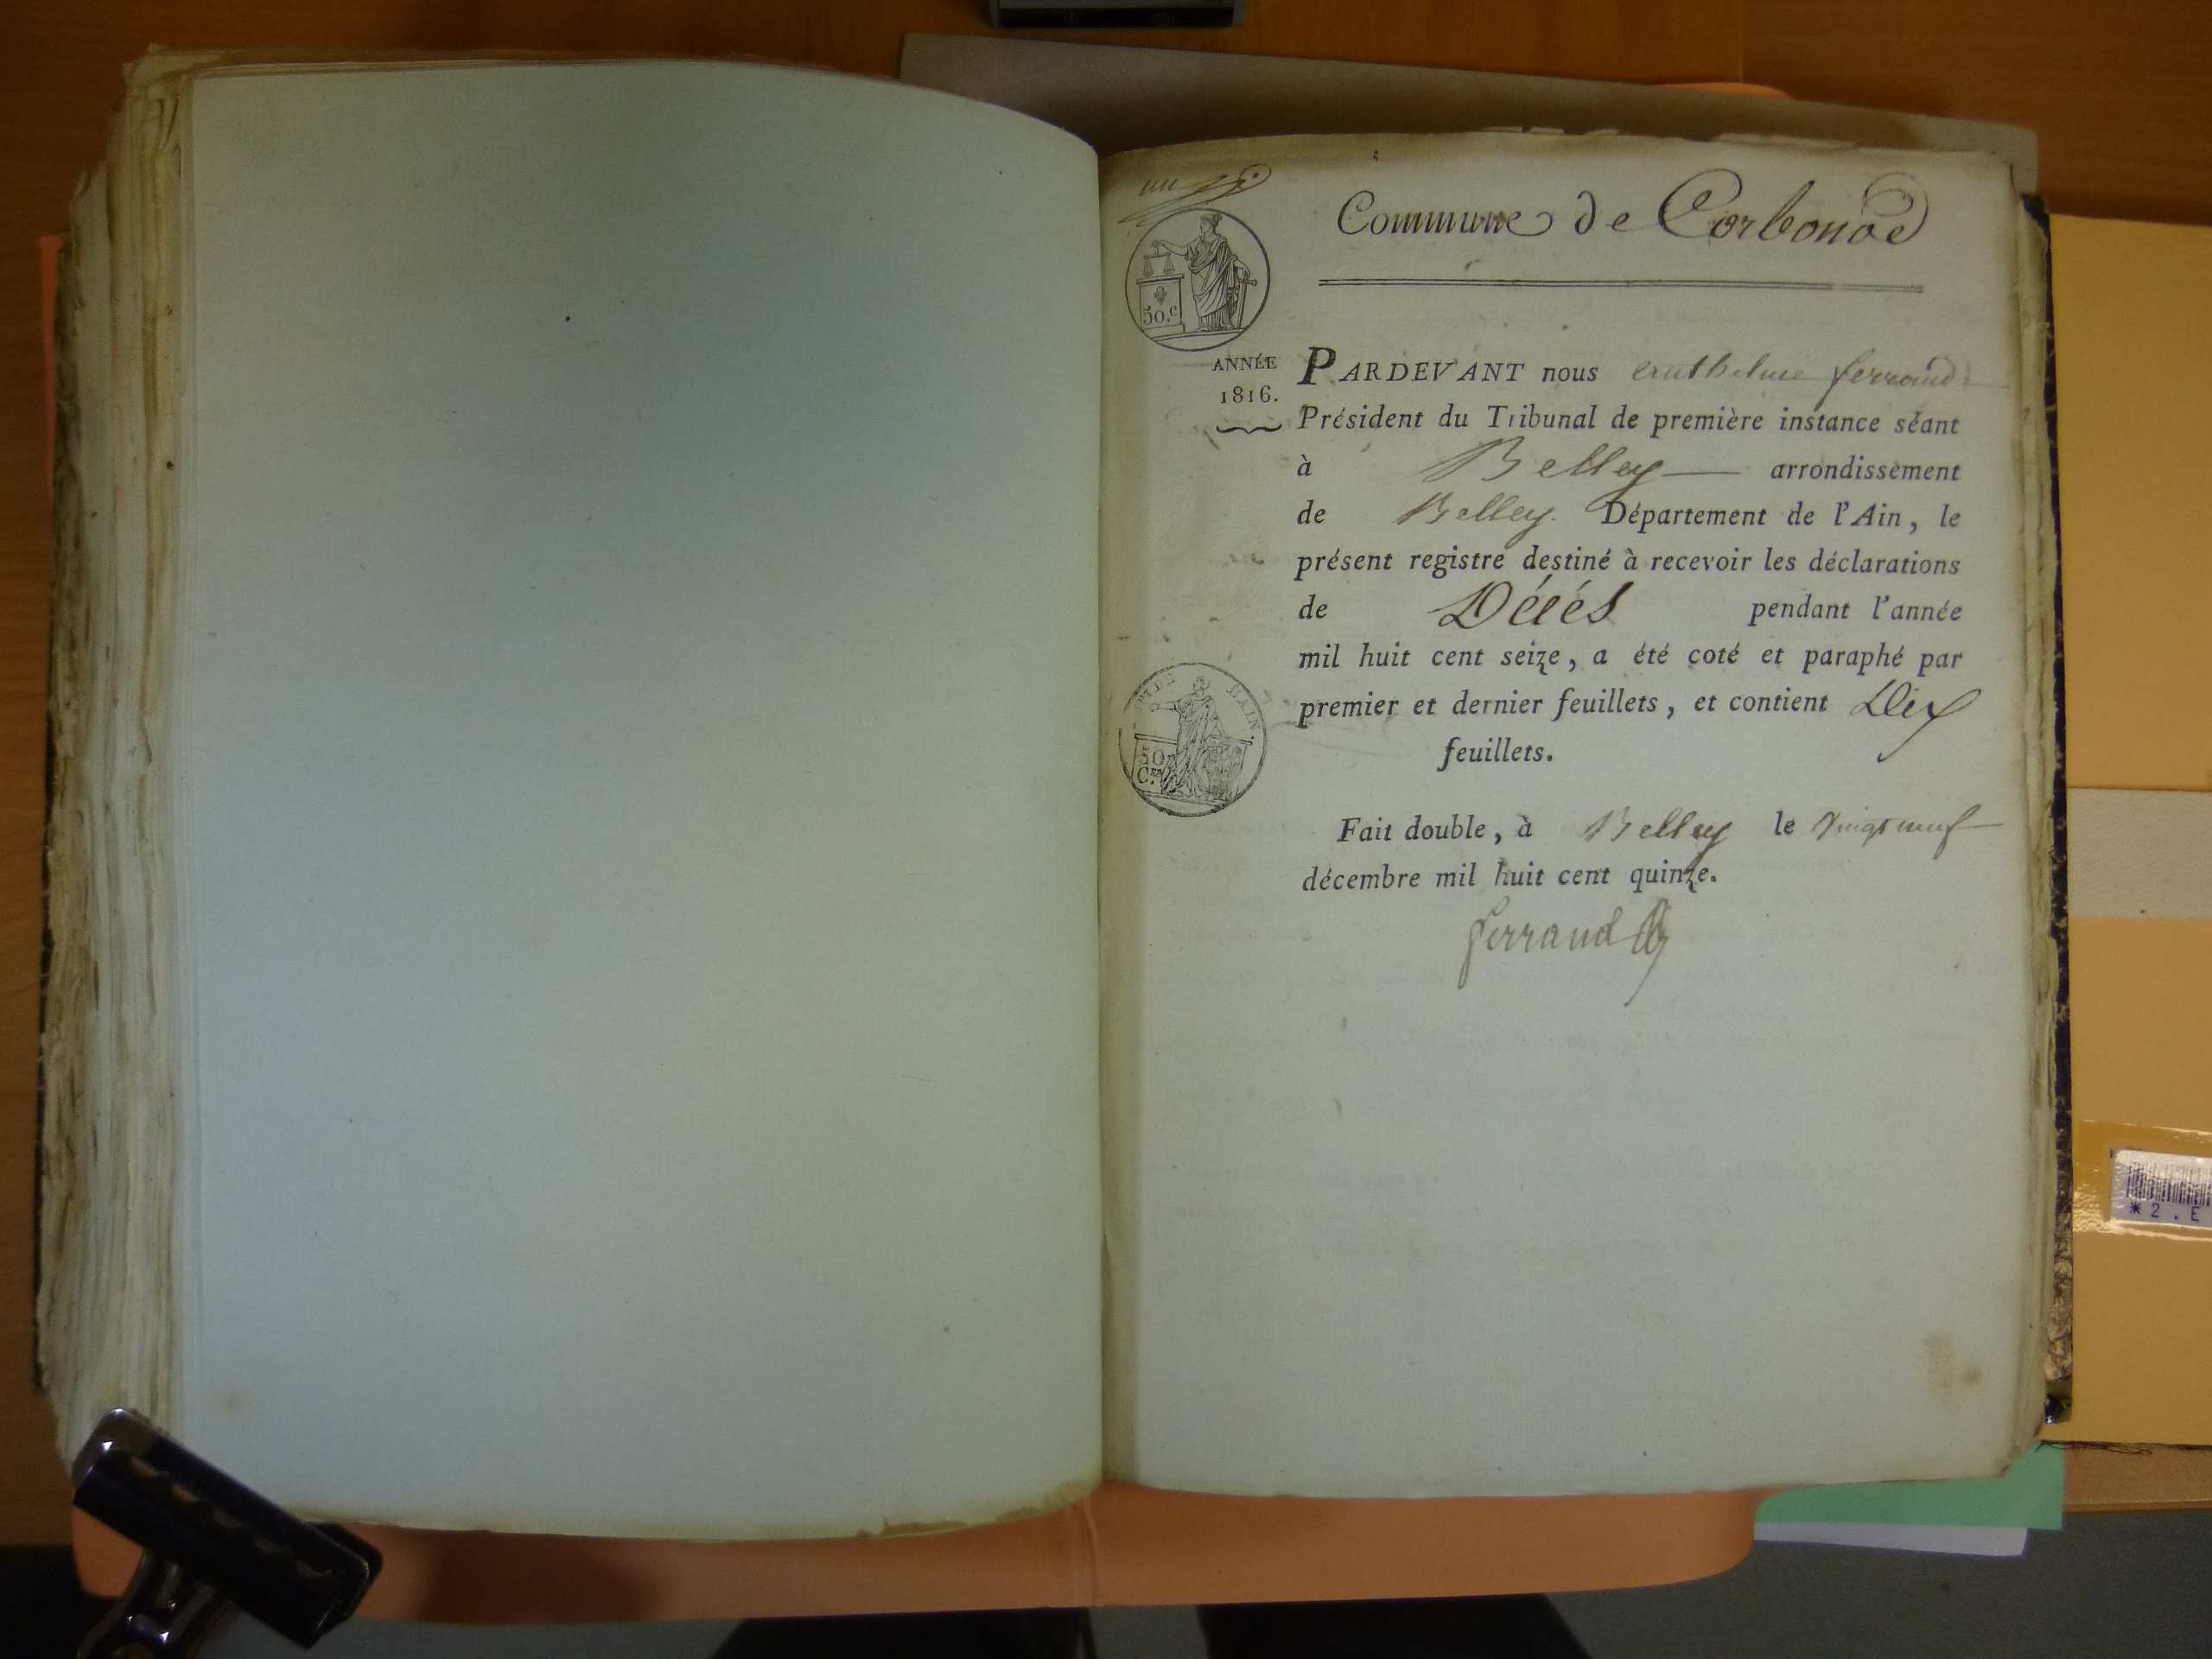 un
Commune de Corbonod
50.c
ANNÉE
1816.
PARDEVANT nous anthelme ferrand
Président du Tribunal de première instance séant
à Belley arrondissement
de Belley. Département de l'Ain, le
présent registre destiné à recevoir les déclarations
de Décés pendant l'année
mil huit cent seize, a été coté et paraphé par
premier et dernier feuillets, et contient Dix
feuillets.
DEPT DE L'AIN.
50
Cen
Fait double, à Belley le vingt neuf
décembre mil huit cent quinze.
ferrand
*2.E